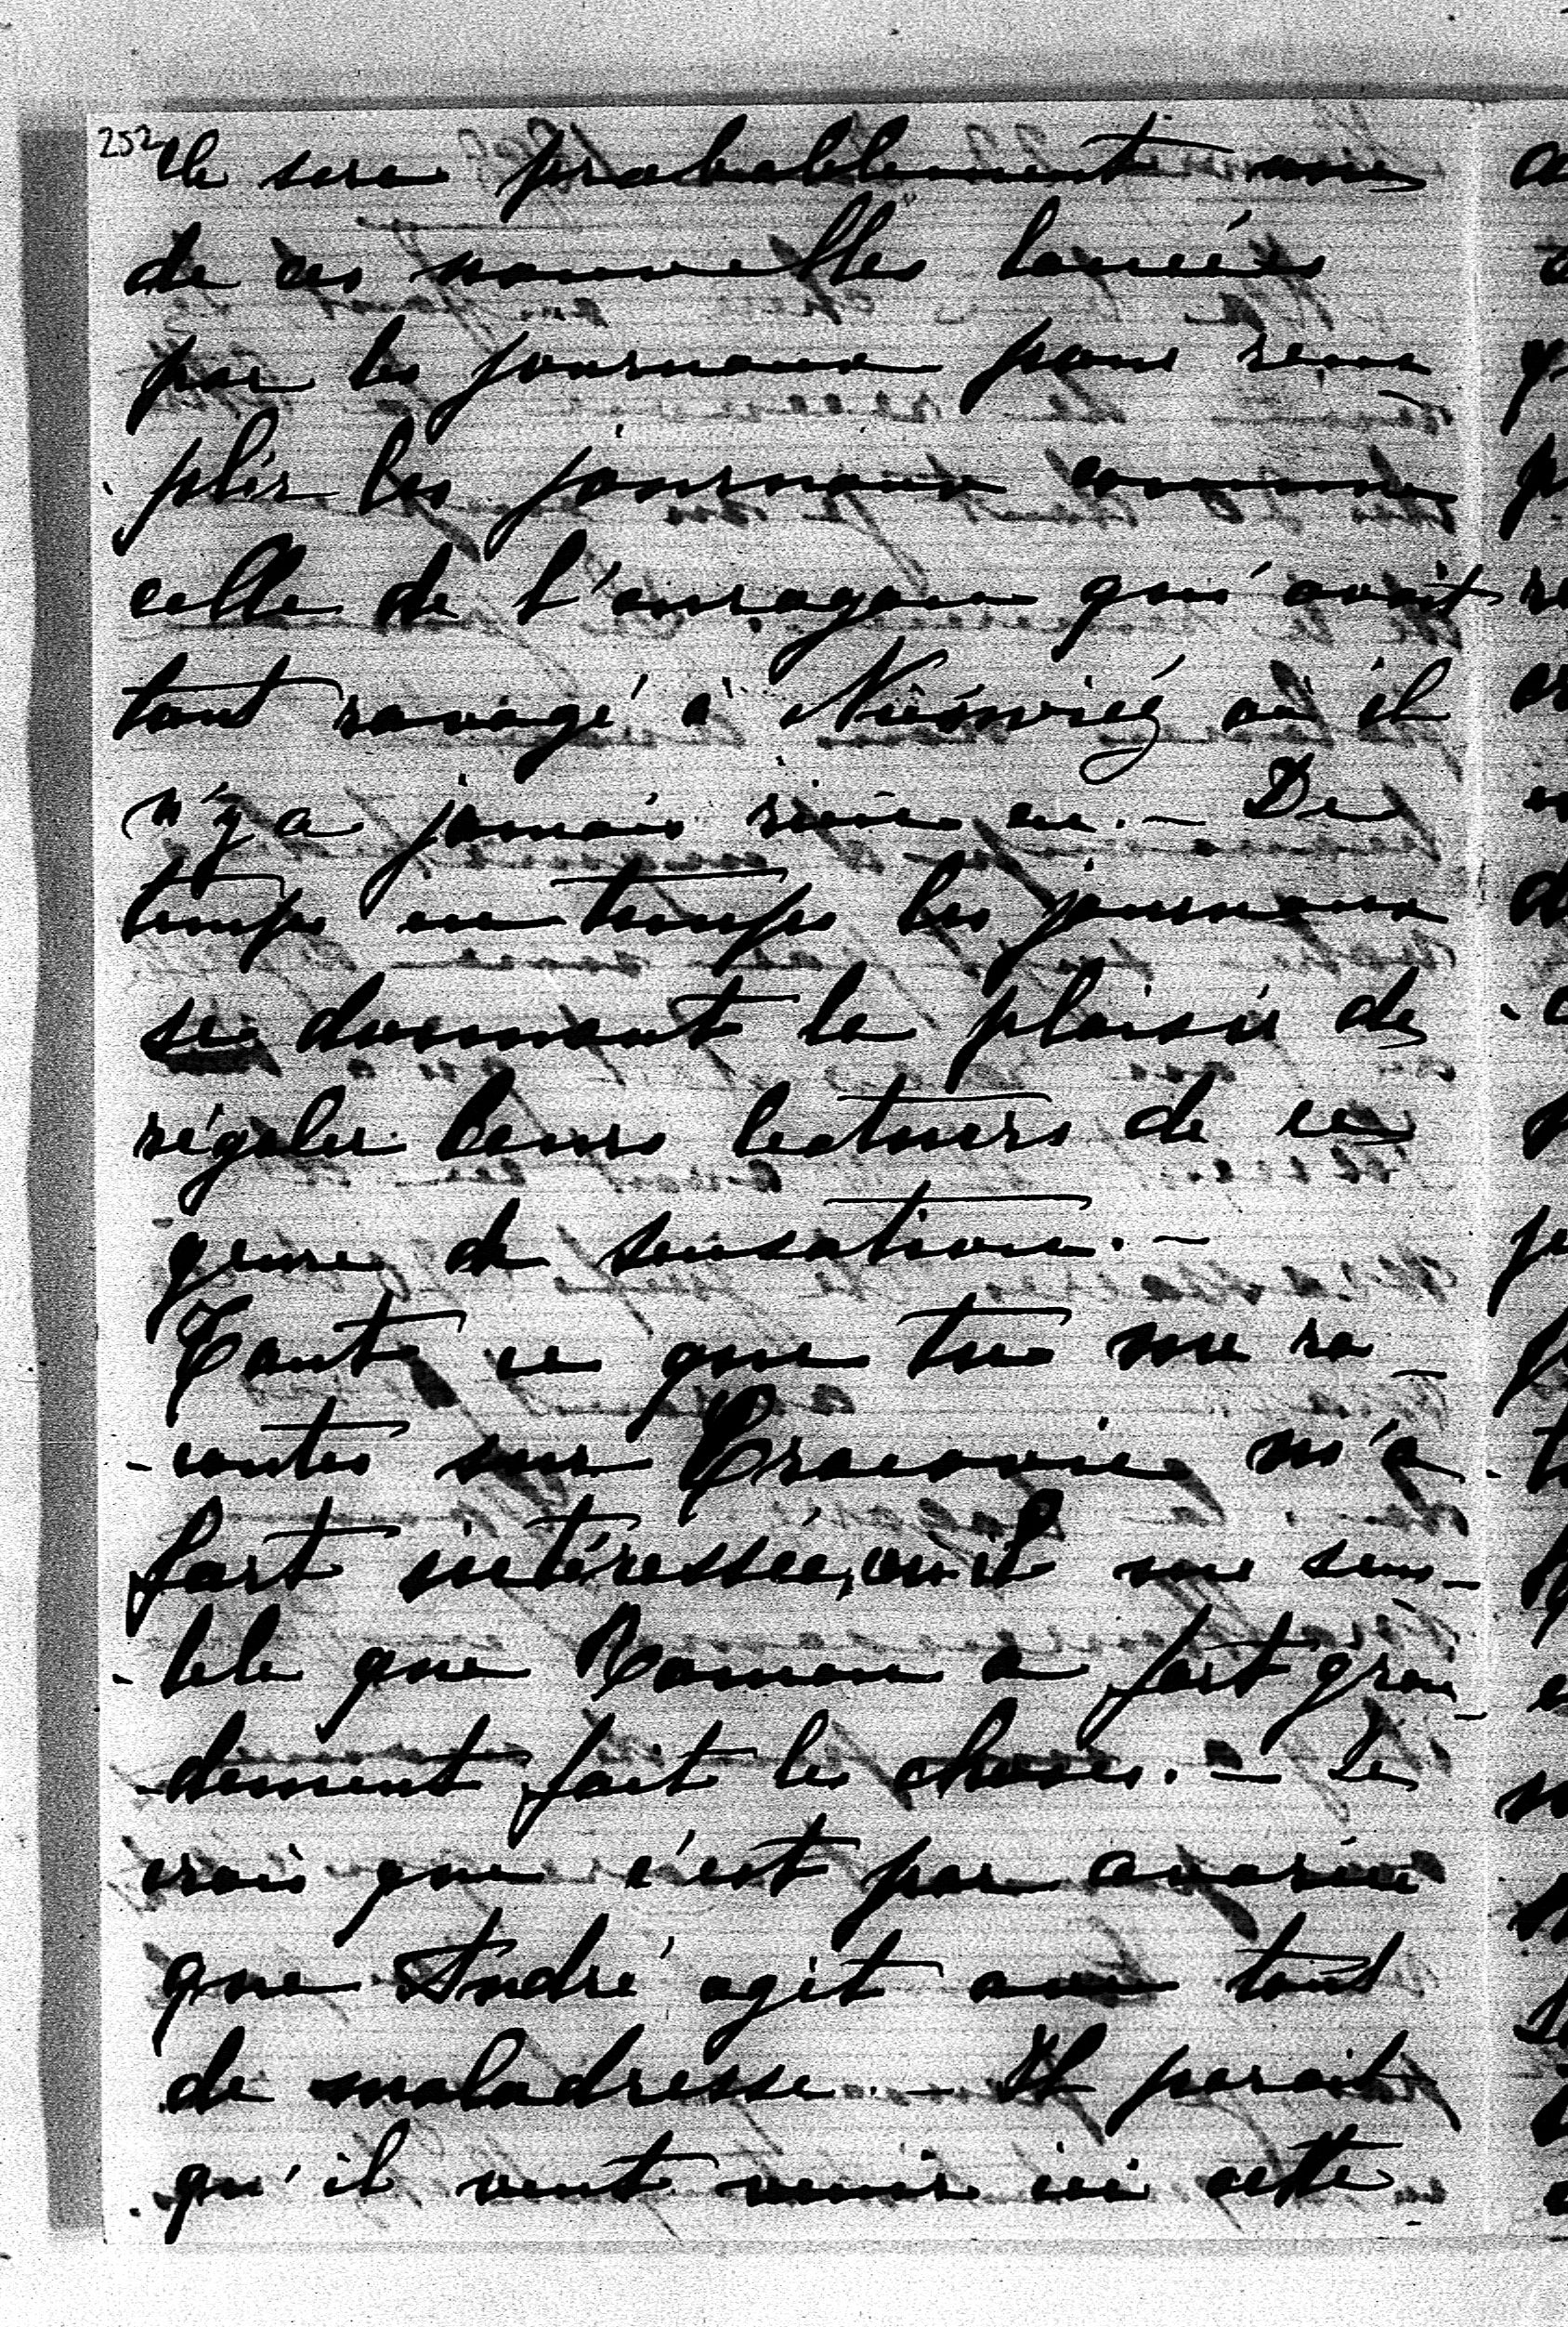 252
Ce sera probablement une
de ces nouvelles lancées
par les journaux pour rem
plir les journaux comme
celle de l'ouragan qui avait
tout ravagé à Nieświéz où il
n'y a jamais rien eu. — De
temps en temps les journaux
se donnent le plaisir de
régaler leurs lecteurs de ce
genre de sensation. —
Tout ce que tu me ra-
-contes sur Cracovie m'a
fort intéressée, il me sem-
-ble que Roman a fort gran-
-dement fait les choses. — Je
crois que c'est par avarice
que André agit avec tant
de maladresse. — Il parait
qu'il veut venir ici cette